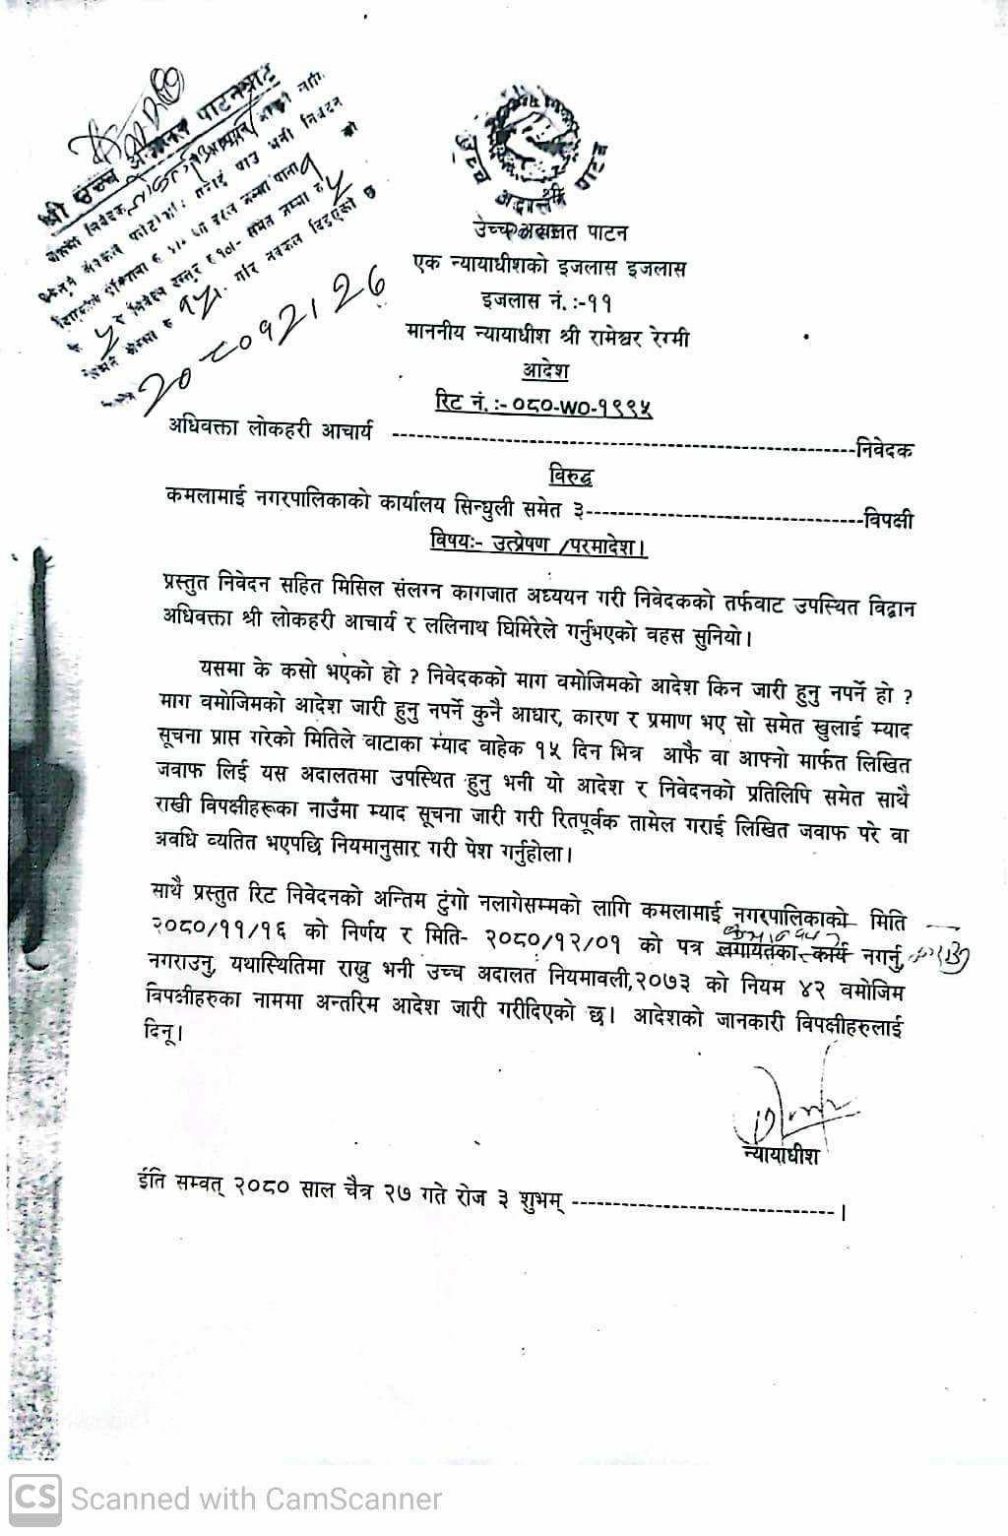 श्री उच्च अदालत पाटनबाट
२०८०।१२।२८
उच्च अदालत पाटन
श्री
उच्च अदालत पाटन
एक न्यायाधीशको इजलास इजलास
इजलास नं. :-११
माननीय न्यायाधीश श्री रामेश्वर रेग्मी
आदेश
रिट नं. :- ०८०-WO-१९९५
अधिवक्ता लोकहरी आचार्य ---------------------------------------------------------निवेदक
विरुद्ध
कमलामाई नगरपालिकाको कार्यालय सिन्धुली समेत ३----------------------------------विपक्षी
विषयः- उत्प्रेषण /परमादेश।
प्रस्तुत निवेदन सहित मिसिल संलग्न कागजात अध्ययन गरी निवेदकको तर्फवाट उपस्थित विद्वान
अधिवक्ता श्री लोकहरी आचार्य र ललिनाथ घिमिरेले गर्नुभएको वहस सुनियो।
यसमा के कसो भएको हो ? निवेदकको माग वमोजिमको आदेश किन जारी हुनु नपर्ने हो ?
माग वमोजिमको आदेश जारी हुनु नपर्ने कुनै आधार, कारण र प्रमाण भए सो समेत खुलाई म्याद
सूचना प्राप्त गरेको मितिले वाटाका म्याद वाहेक १५ दिन भित्र आफै वा आफ्नो मार्फत लिखित
जवाफ लिई यस अदालतमा उपस्थित हुनु भनी यो आदेश र निवेदनको प्रतिलिपि समेत साथै
राखी विपक्षीहरूका नाउँमा म्याद सूचना जारी गरी रितपूर्वक तामेल गराई लिखित जवाफ परे वा
अवधि व्यतित भएपछि नियमानुसार गरी पेश गर्नुहोला।
साथै प्रस्तुत रिट निवेदनको अन्तिम टुंगो नलागेसम्मको लागि कमलामाई नगरपालिकाको मिति
२०८०/११/१६ को निर्णय र मिति- २०८०/१२/०१ को पत्र लगायतका कार्य नगर्नु,
नगराउनु, यथास्थितिमा राख्नु भनी उच्च अदालत नियमावली,२०७३ को नियम ४२ वमोजिम
विपक्षीहरुका नाममा अन्तरिम आदेश जारी गरीदिएको छ। आदेशको जानकारी विपक्षीहरुलाई
दिनू।
न्यायाधीश
ईति सम्वत् २०८० साल चैत्र २७ गते रोज ३ शुभम् --------------------------------।
CS Scanned with CamScanner